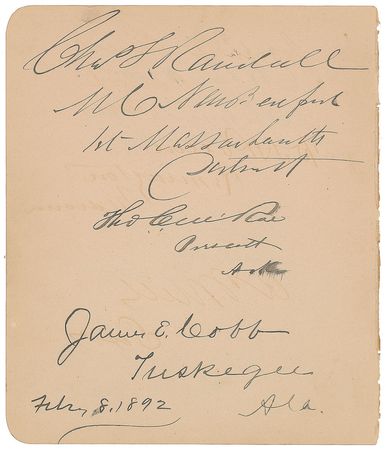 Chas S Randall
M C New Bedford
1st Massachusetts
District
Thos C McRae
Prescott
Ark
James E. Cobb
Tuskegee
Feby 8, 1892 Ala.